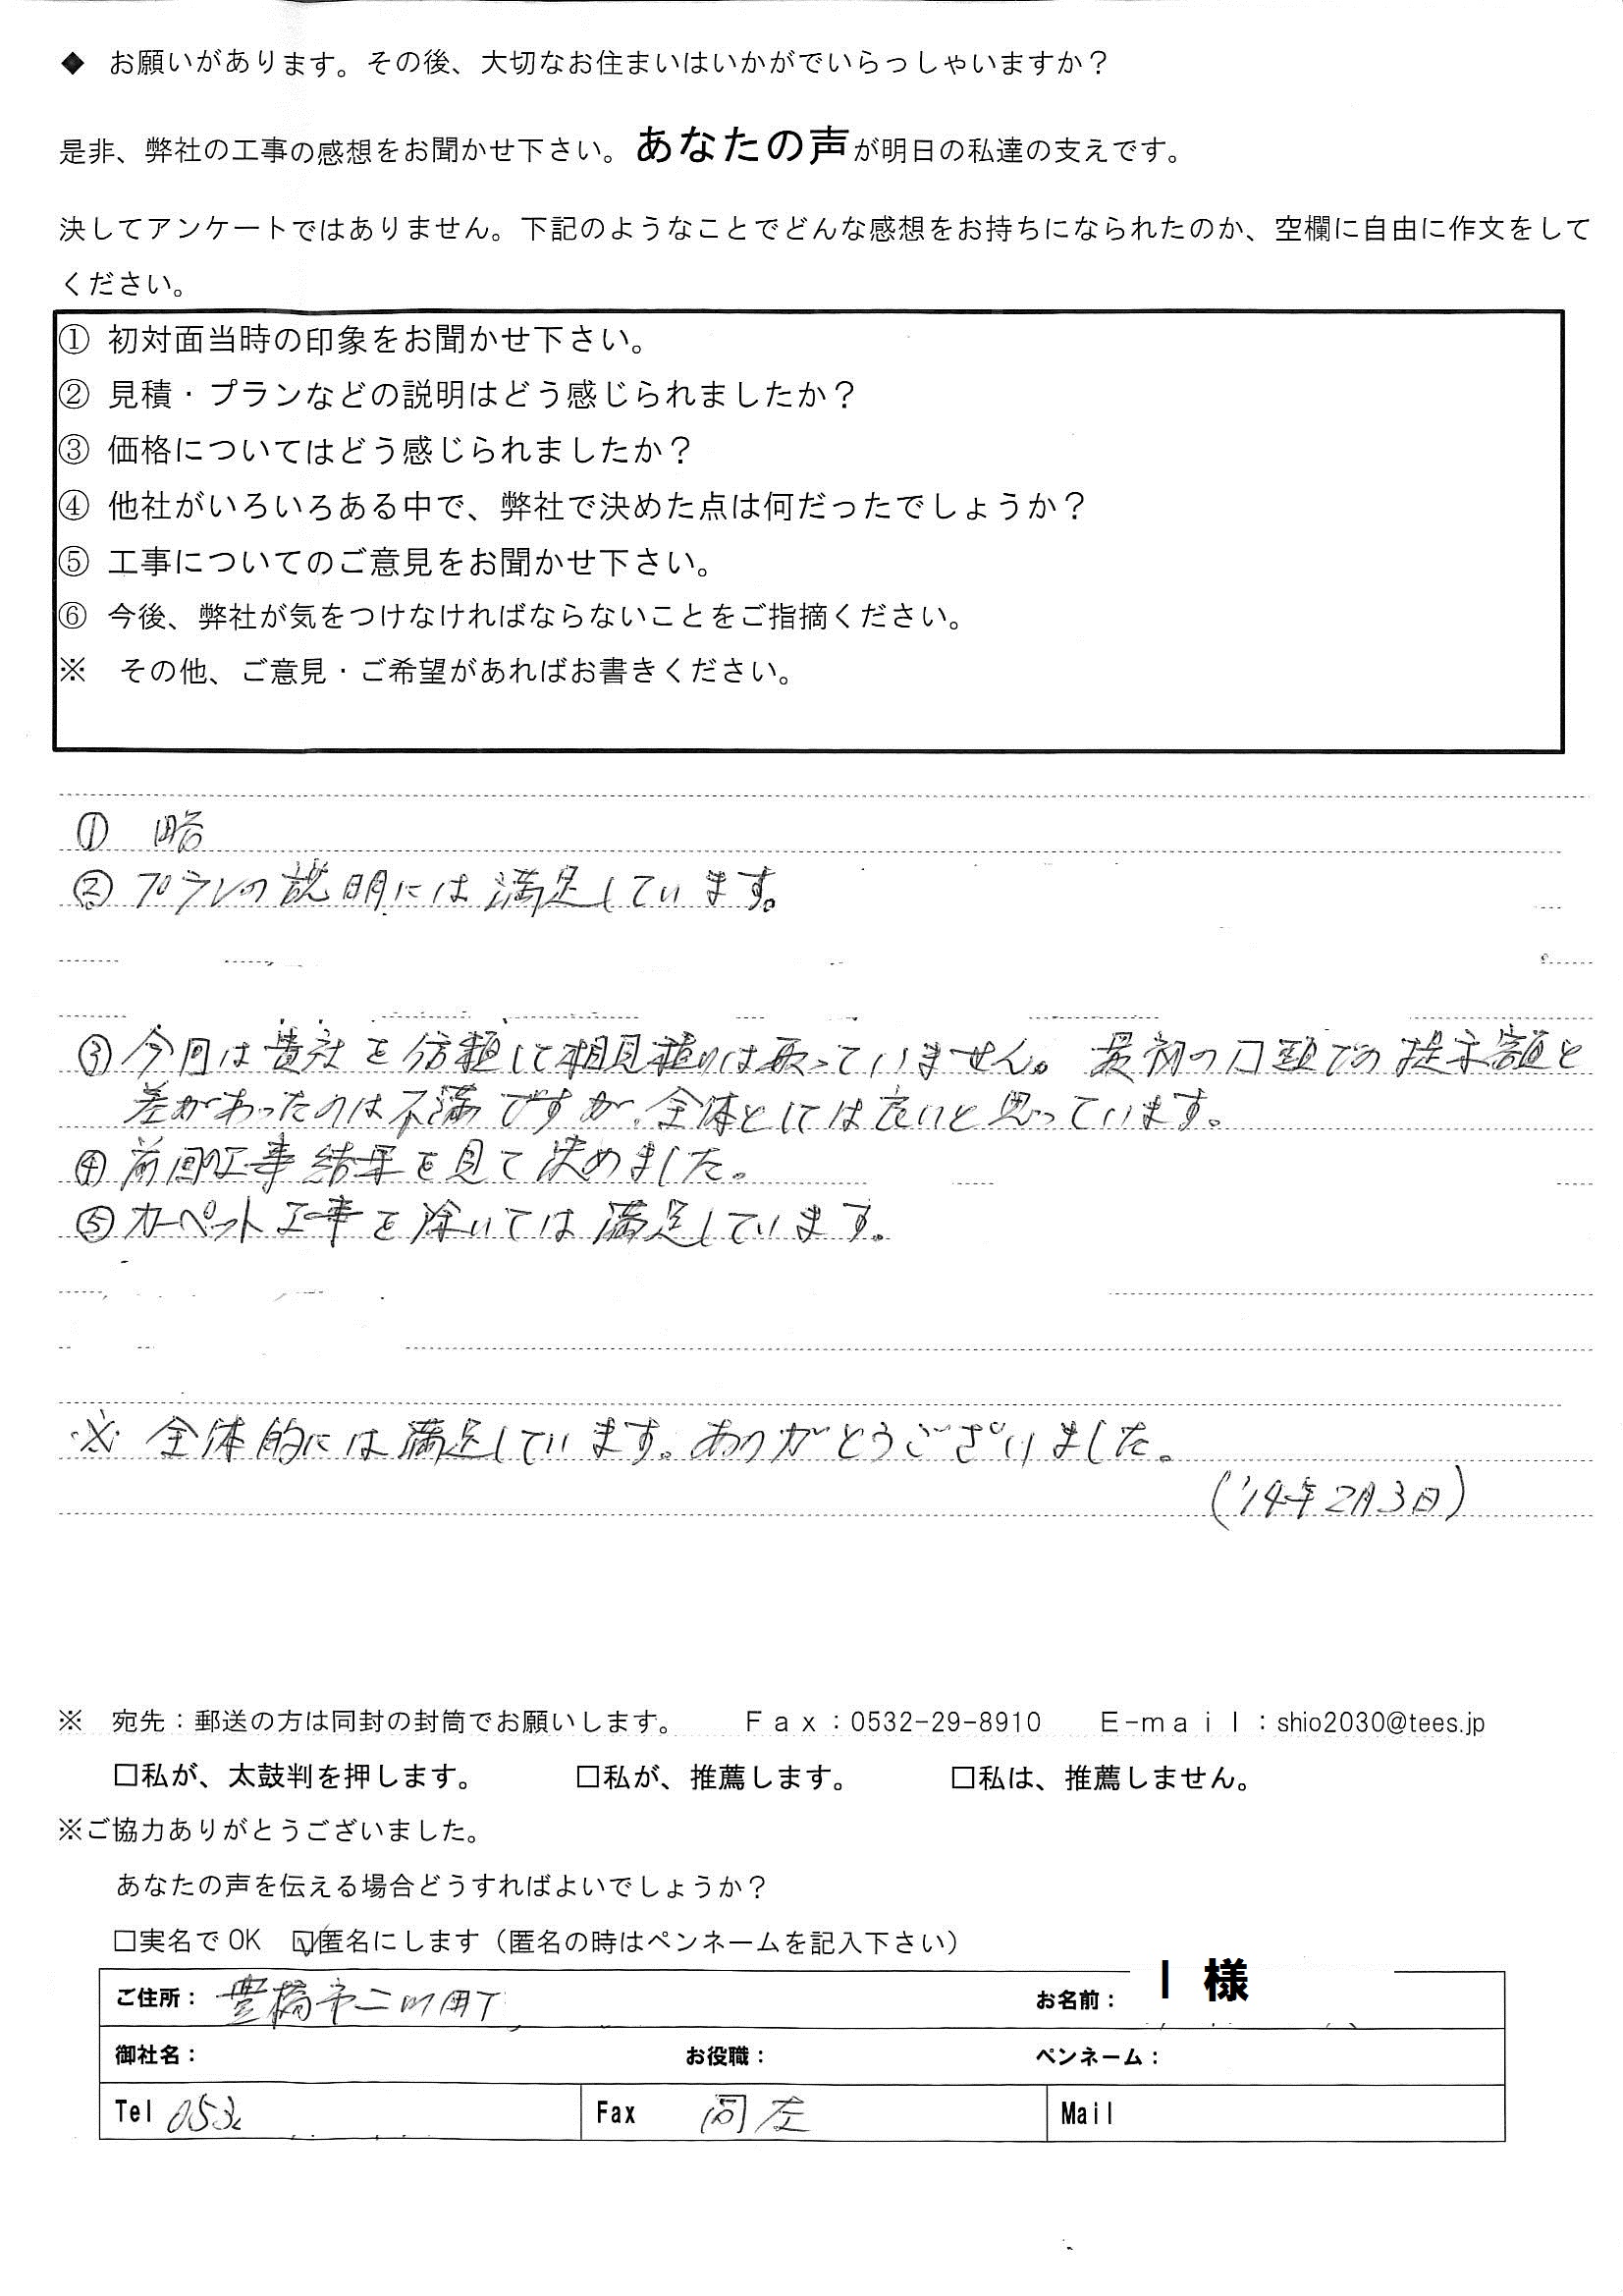 ◆ お願いがあります。その後、大切なお住まいはいかがでいらっしゃいますか？
是非、弊社の工事の感想をお聞かせ下さい。あなたの声が明日の私達の支えです。
決してアンケートではありません。下記のようなことでどんな感想をお持ちになられたのか、空欄に自由に作文をして
ください。
① 初対面当時の印象をお聞かせ下さい。
② 見積・プランなどの説明はどう感じられましたか？
③ 価格についてはどう感じられましたか？
④ 他社がいろいろある中で、弊社で決めた点は何だったでしょうか？
⑤ 工事についてのご意見をお聞かせ下さい。
⑥ 今後、弊社が気をつけなければならないことをご指摘ください。
※ その他、ご意見・ご希望があればお書きください。
① 略
② プランの説明には満足しています。
③ 今回は貴社を信頼して相見積りは取っていません。最初の口頭での提示額と
差があったのは不満ですが、全体としては良いと思っています。
④ 前回の工事結果を見て決めました。
⑤ カーペット工事を除いては満足しています。
※ 全体的には満足しています。ありがとうございました。
('14年2月3日)
※ 宛先：郵送の方は同封の封筒でお願いします。 Ｆａｘ：0532-29-8910 Ｅ-ｍａｉｌ：shio2030@tees.jp
□私が、太鼓判を押します。 □私が、推薦します。 □私は、推薦しません。
※ご協力ありがとうございました。
あなたの声を伝える場合どうすればよいでしょうか？
□実名でOK ☑匿名にします（匿名の時はペンネームを記入下さい）
ご住所： 豊橋市二川町 お名前： I 様
御社名： お役職： ペンネーム：
Tel 0532 Fax 同左 Mail